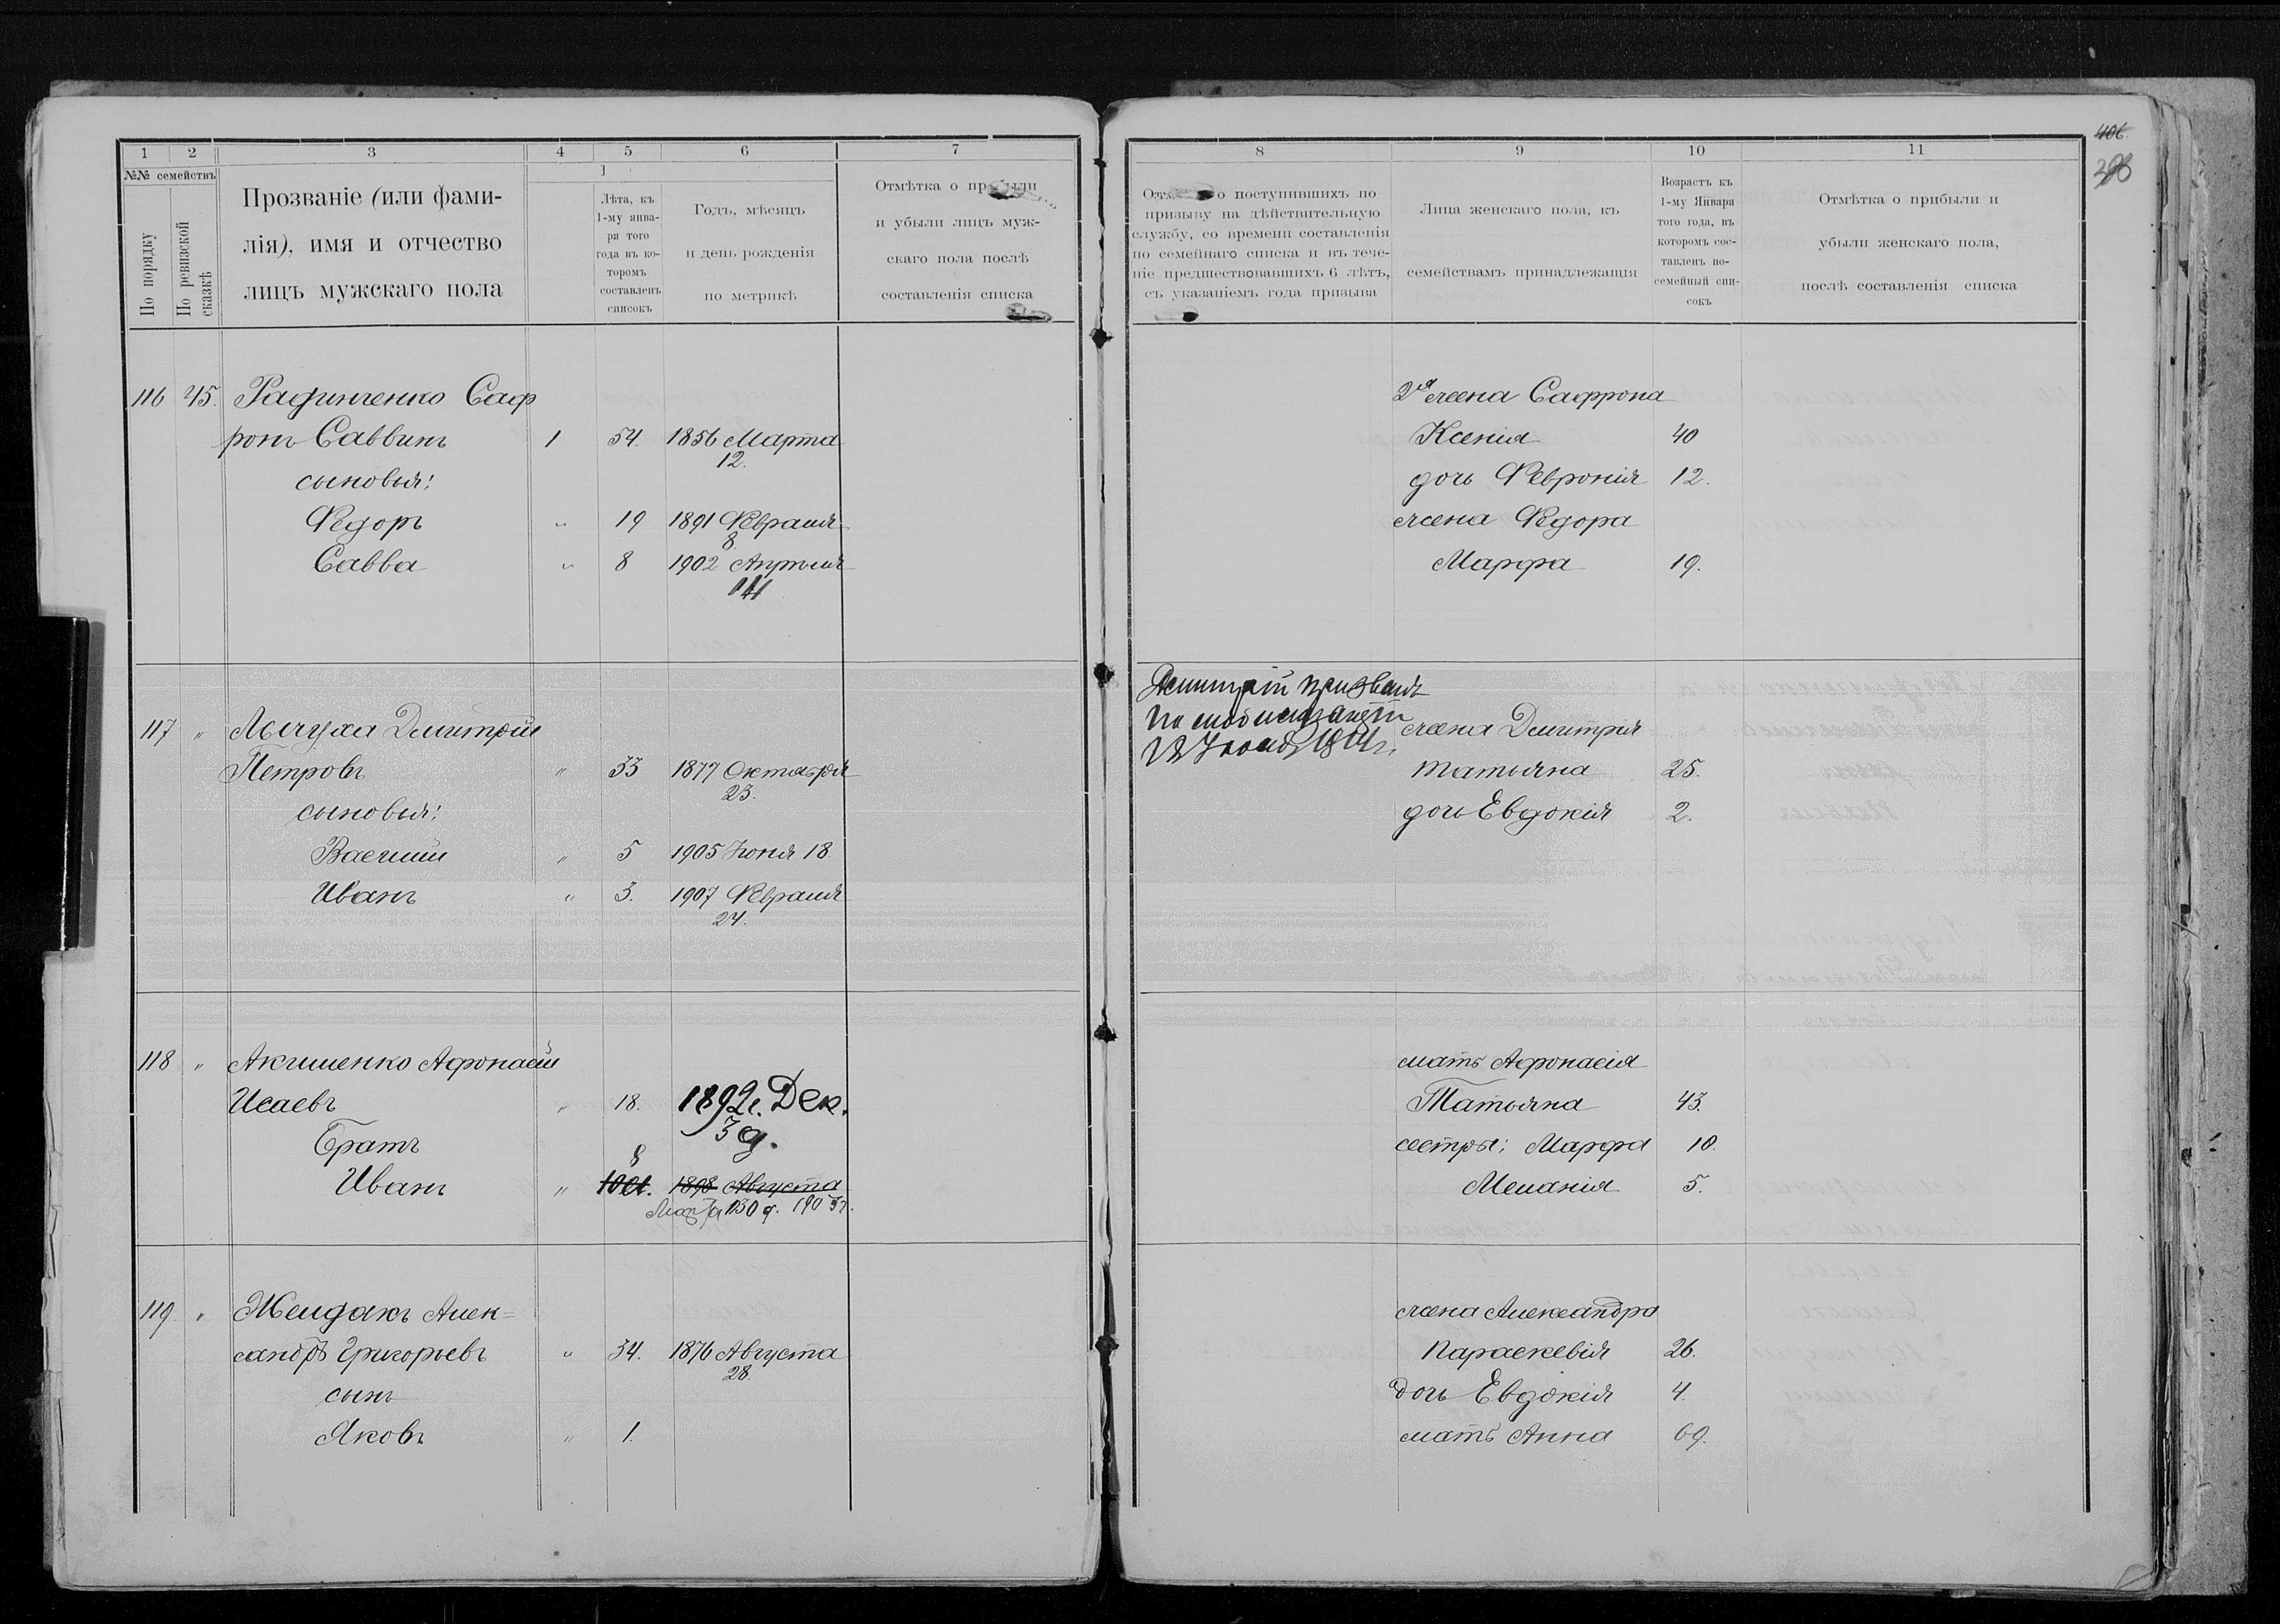 406.
1 2 3 4 5 6 7
№№ семействъ
По порядку
По ревизской сказкѣ
Прозваніе (или фами-
лія), имя и отчество
лицъ мужскаго пола
Лѣта, къ
1-му янва-
ря того
года въ ко-
торомъ
составленъ
списокъ
Годъ, мѣсяцъ
и день рожденія
по метрикѣ
Отмѣтка о прибыли
и убыли лицъ муж-
скаго пола послѣ
составленія списка
8 9 10 11
о поступившихъ по
призыву на дѣйствительную
службу, со времени составленія
по семейнаго списка и въ тече-
ніе предшествовавшихъ 6 лѣтъ,
съ указаніемъ года призыва
Лица женскаго пола, къ
семействамъ принадлежащія
Возрастъ къ
1-му Января
того года, въ
которомъ сос-
тавленъ по-
семейный спи-
сокъ
Отмѣтка о прибыли и
убыли женскаго пола,
послѣ составленія списка
116 45. Радинченко Саф
ронъ Саввинъ 1 54. 1856 Марта
12.
сыновья:
Ѳедоръ " 19 1891 Февраля
8.
Савва " 8 1902 Апрѣля
2я жена Сафрона
Ксенія 40
дочь Февронія 12.
жена Ѳедора
Марфа 19.
117 " Лычуха Дмитрій
Петровъ " 33 1877 Октября
23.
сыновья:
Василій " 5 1905 Іюня 18.
Иванъ " 3. 1907 Февраля
24.
Дмитрій призванъ
по мобилизаціи
жена Дмитрія
Татьяна 25.
дочь Евдокія 2.
118 " Акименко Афонасій
Исаевъ " 18. 1892г. Дек.
3 д.
Братъ
8
Иванъ " 10 1898 Августа
Марта 30 д. 190
мать Афонасія
Татьяна 43.
сестры: Марфа 10.
Меланія 5.
119 " Желдакъ Алек-
сандръ Григорьевъ " 34. 1876 Августа
28.
сынъ
Яковъ " 1.
жена Александра
Параскевія 26.
дочь Евдокія 4.
мать Анна 69.